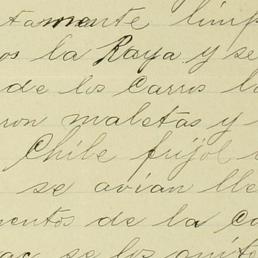 tamente limp
os la Raya y se
de los carros lo
ron maletas y
Chile frijol
se avian lle
entos de la Ca
se los quito